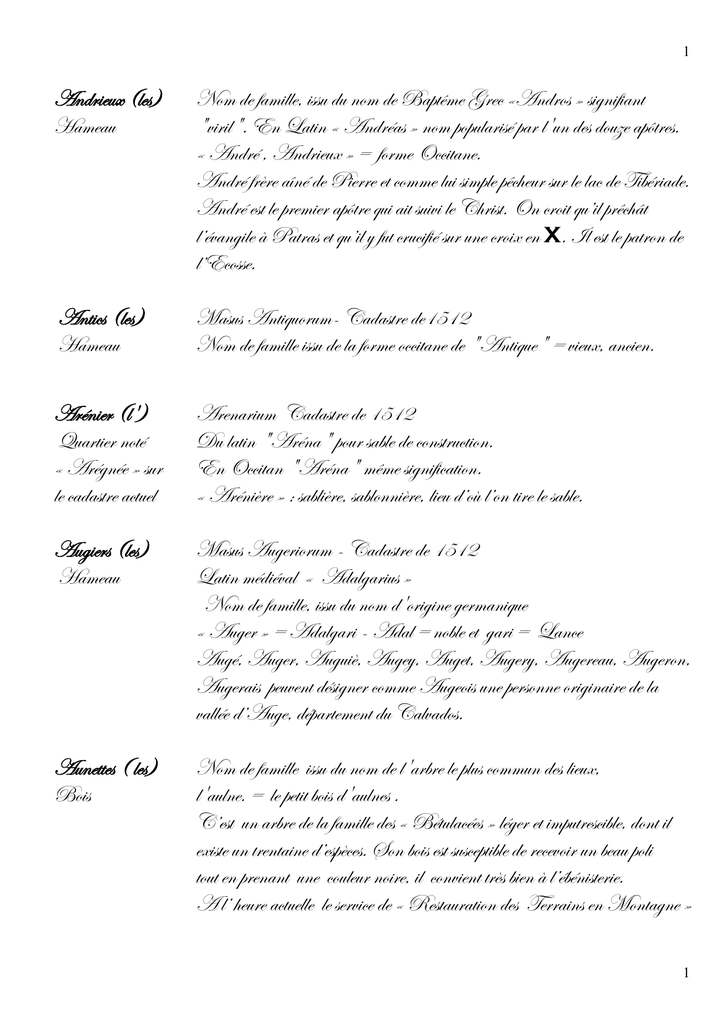 1
Andrieux (les) Nom de famille, issu du nom de Baptême Grec «Andros » signifiant
Hameau "viril ". En Latin « Andréas » nom popularisé par l'un des douze apôtres.
« André , Andrieux » = forme Occitane.
André frère aîné de Pierre et comme lui simple pêcheur sur le lac de Tibériade.
André est le premier apôtre qui ait suivi le Christ. On croit qu'il prêchât
l'évangile à Patras et qu'il y fut crucifié sur une croix en X. Il est le patron de
l'Ecosse.
Antics (les) Masus Antiquorum- Cadastre de 1512
Hameau Nom de famille issu de la forme occitane de "Antique " = vieux, ancien.
Arénier (l') Arenarium Cadastre de 1512
Quartier noté Du latin "Aréna " pour sable de construction.
« Arégnée » sur En Occitan "Aréna " même signification.
le cadastre actuel « Arénière » ; sablière, sablonnière, lieu d'où l'on tire le sable.
Augiers (les) Masus Augeriorum - Cadastre de 1512
Hameau Latin médiéval « Adalgarius »
Nom de famille, issu du nom d'origine germanique
« Auger » = Adalgari - Adal = noble et gari = Lance
Augé, Auger, Auguiè, Augey, Auget, Augery, Augereau, Augeron,
Augerais peuvent désigner comme Augeois une personne originaire de la
vallée d'Auge, département du Calvados.
Aunettes (les) Nom de famille issu du nom de l'arbre le plus commun des lieux,
Bois l'aulne. = le petit bois d'aulnes .
C'est un arbre de la famille des « Bétulacées » léger et imputrescible, dont il
existe un trentaine d'espèces. Son bois est susceptible de recevoir un beau poli
tout en prenant une couleur noire, il convient très bien à l'ébénisterie.
A l'heure actuelle le service de « Restauration des Terrains en Montagne »
1